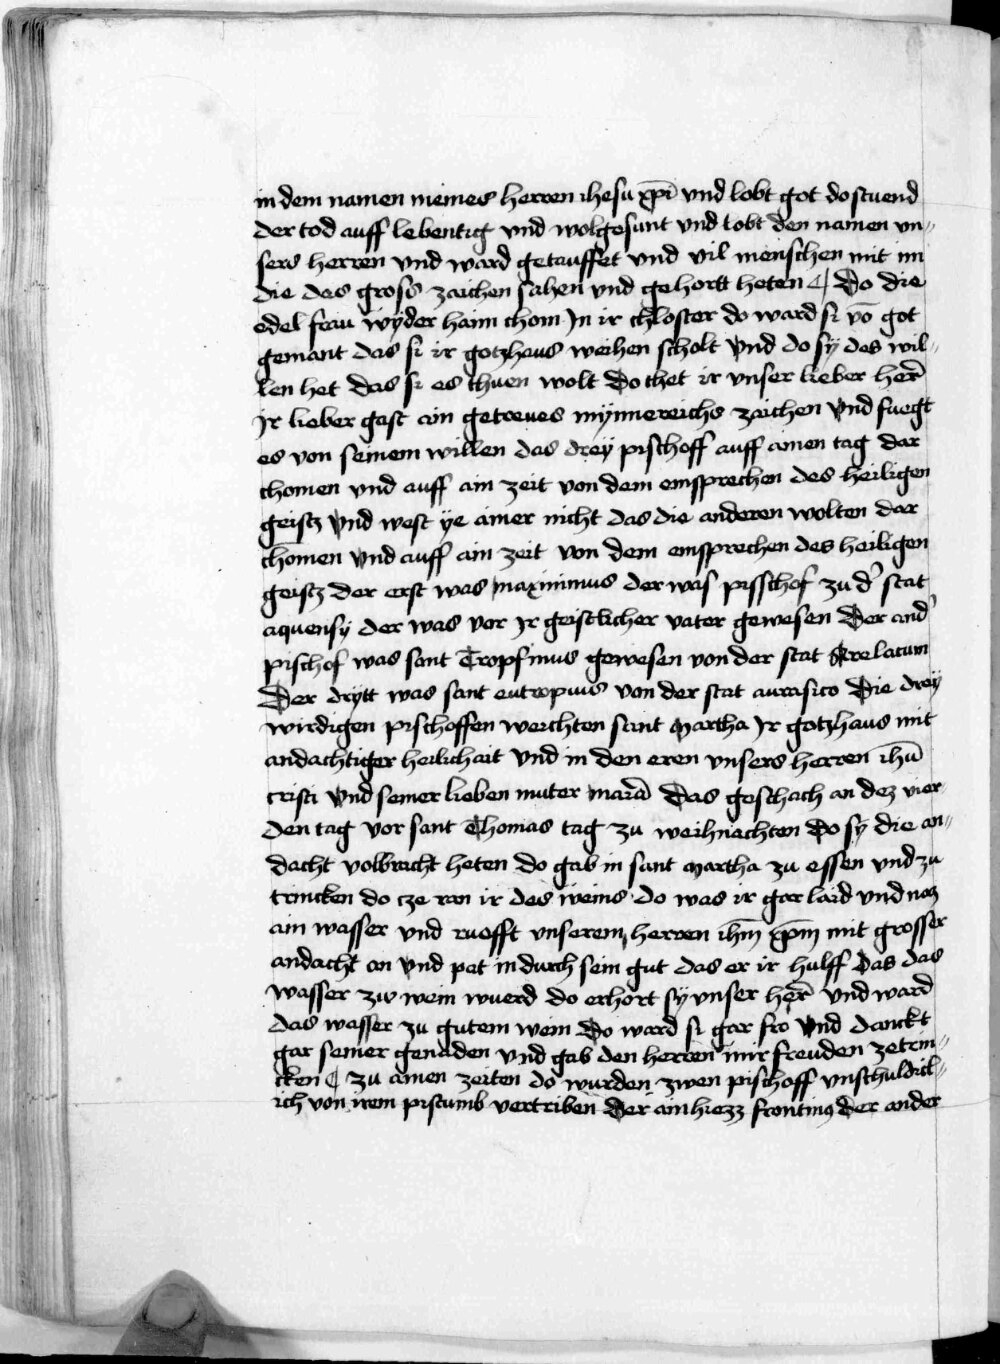 in dem namen meines herren ihesu xp̄i vnd lobt got do stuend
der tod auff lebentig vnd wolgesunt vnd lobt den namen vn⸗
sers herren vnd ward getauffet vnd vil menschen mit im
die das gross zaichen sahen vnd gehortt heten ¶ Do die
edel frau wÿder haim chom Jn ir chloster do ward si vō got
gemant das si ir gotzhaus weihen scholt Vnd do sÿ des wil⸗
len het das si es thuen wolt Do thet ir vnser lieber her̄
Jr lieber gast ain getreues mÿnnereichs zaichen Vnd fuegt
es von seinem willen das dreÿ pischoff auff ainen tag dar
chomen vnd auff ain zeit von dem einsprechen des heiligen
geistz Vnd west ÿe ainer nicht das die anderen wolten dar
chomen Vnd auff ain zeit von dem einsprechen des heiligen
geistz der erst was maximinus der was pisschof zu d' stat
aquensÿ der was vor Jr geistlicher vater gewesen Der and'
pischof was sant Tropfimus gewesen von der stat Arelatum
Der drÿtt was sant eutropius von der stat aurasico Die dreÿ
wirdigen pischoffen weichten sant Martha Jr gotzhaus mit
andachtiger heilichait Vnd in den eren vnsers herren ihū
cristi Vnd seiner lieben muter maria Das geschach an dez vier⸗
den tag vor sant Thomas tag zu weihnachten Do sÿ die an⸗
dacht volbracht heten do gab in sant Martha zu essen vnd zu
trincken do cze ran ir des weins do was ir gar laid vnd nam
ain wasser vnd ruefft vnserem herren ihm̄ xp̄m mit grosser
andacht an Vnd pat in durch sein gut das er ir hulff Das das
wasser zw wein wuerd do erhort sÿ vnser her̄ Vnd ward
das wasser zu gutem wein Do ward si gar fro Vnd danckt
gar seiner genaden vnd gab den herren mir freuden zetrin⸗
cken ¶ zu ainen zeiten do wurden zwen pischoff vnschuldicl⸗
ich von irem pistumb vertriben Der ain hiezz frontin9 der ander